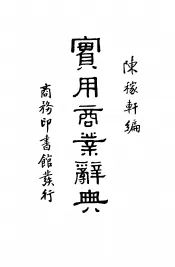 陳稼軒編
實用商業辭典
商務印書館發行